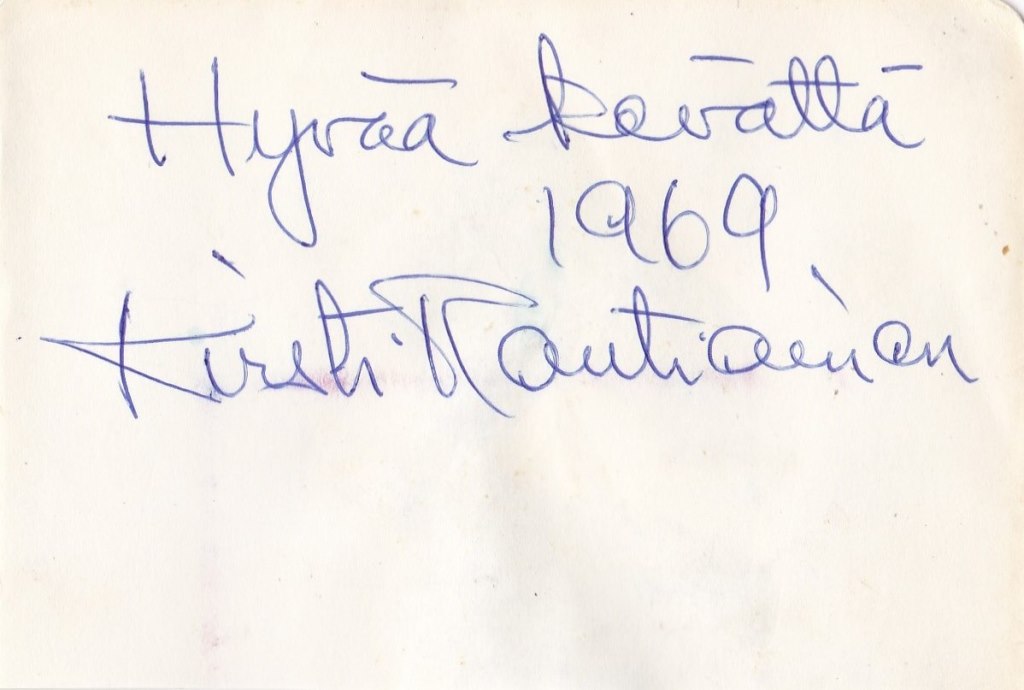 Hyvää kevättä
1969
Kirsti Rautiainen